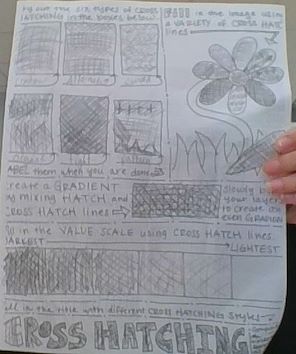 out the six types of CROSS
HATCHING in the boxes below
Fill in the image using
a VARIETY of CROSS HATCH
lines
LABEL them when you are done
Create a GRADIENT
by mixing HATCH and
CROSS HATCH lines
Slowly
your layers
to create an
even GRADIENT
in the VALUE SCALE using CROSS HATCH lines
DARKEST
LIGHTEST
Fill in the title with different CROSS HATCHING styles
CROSS HATCHING